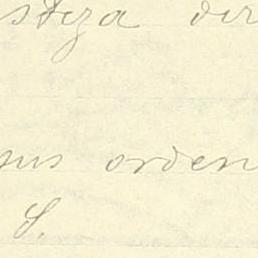 steza der
sus orden
S.